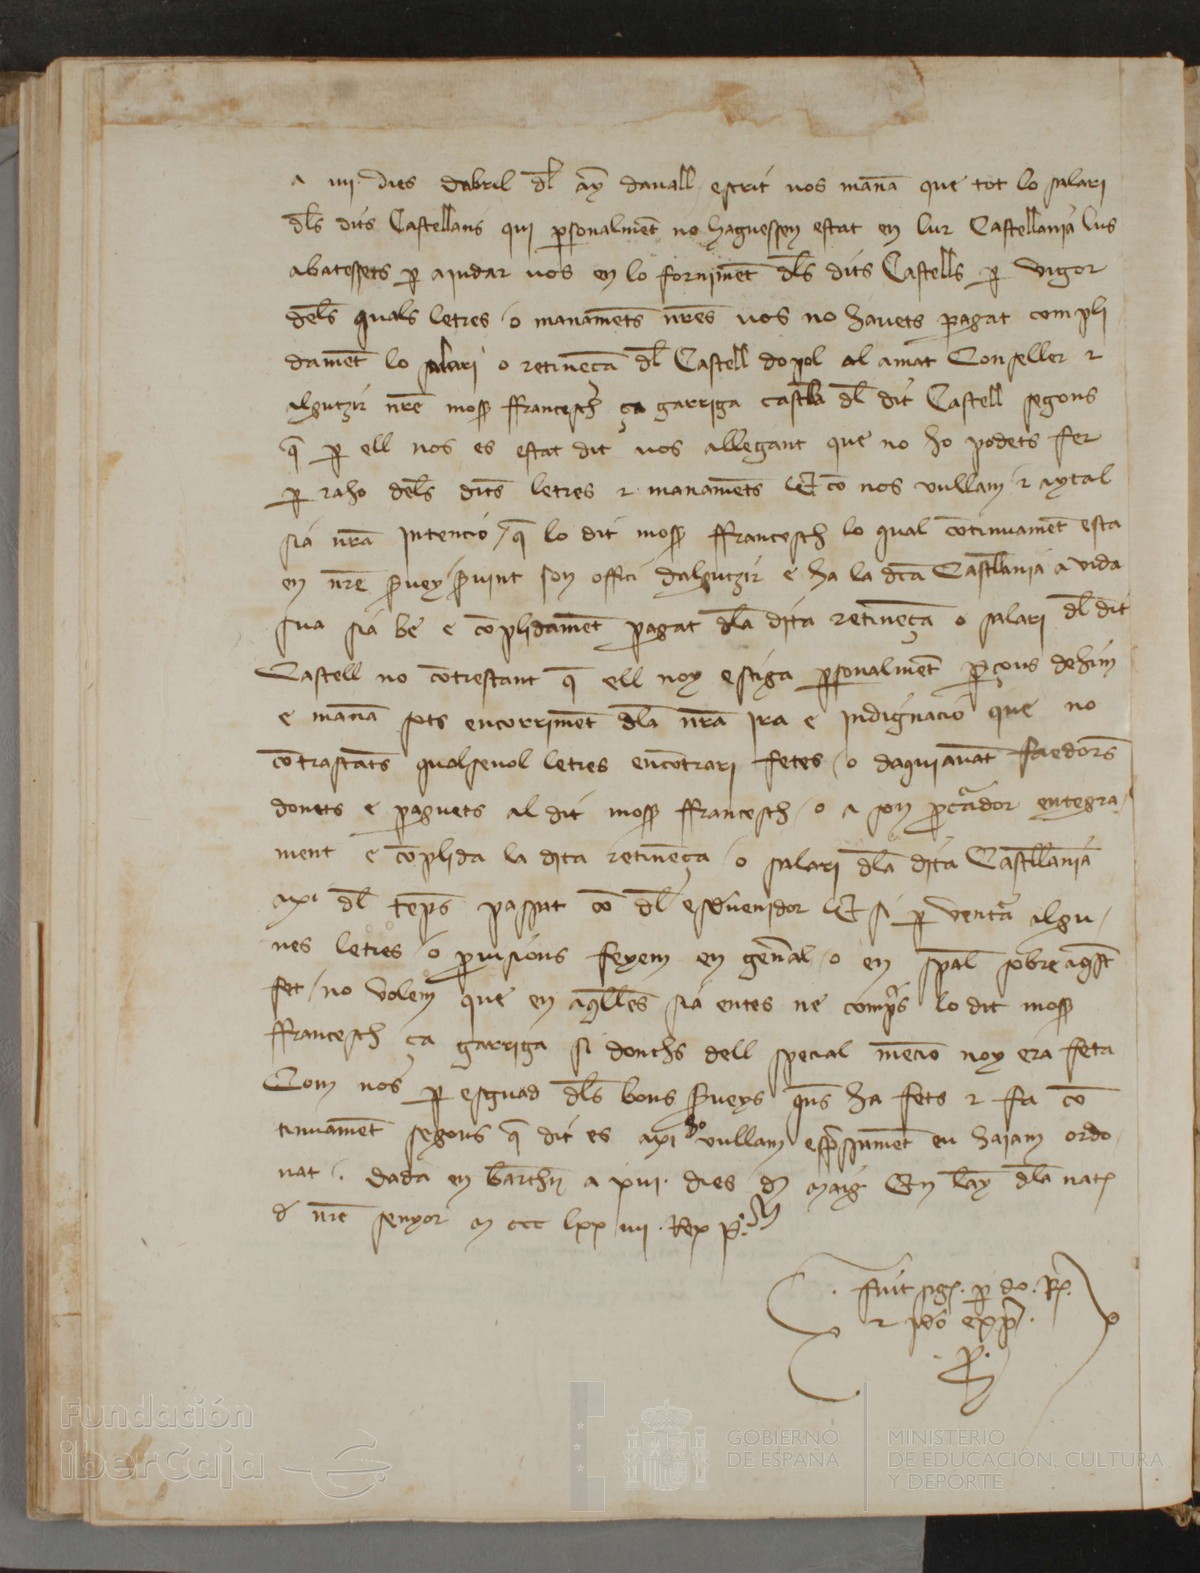 a iiii dies dabril dl any dauall escrit vos mana que tot lo salari
dls dits Castellans qui psonalment no haguessen estat en lur Castellania lus
abatessets p aiudar vos en lo forniment dls dits Castells p vigor
dels quals letres o manaments nres vos no hauets pagat compli
dament lo salari o retinença dl Castell dopol al amat Conseller e
algutzir nre moss ffrancesch ça garriga castlla dl dit Castell segons
q p ell nos es estat dit vos allegant que no ho podets fer
p raho dels dits letres e manaments Et co nos vullam e aytal
sia nra intencio q lo dit moss ffrancesch lo qual continuament esta
en nre seruey seruint son offici dalgutzir e ha la dca Castllania a vida
sua sia be e complidament pagat dla dita retinença o salari dl dit
Castell no contrestant q ell noy estiga psonalment pçous dehim
e mana sots encorriment dla nra ira e indignacio que no
contrastants qualseuol letres encontrari fetes o daquiauant faedors
donets e paguets al dit moss ffrancesch o a son pcurador entegra
ment e complida la dita retinença o salari dla dita Castllania
axi dl temps passat co dl esdeuenidor Et si p ventura algu
nes letres o prouisions feyem en general o en spal sobre aqst
fet no volem que en aqlles sia entes ne compres lo dit moss
ffrancesch ça garriga si donchs dell special mencio noy era feta
Com nos p esguard dls bons serueys quns ha fets e fa con
tinuament segons q dit es axi ho vullam espressament eu haiam ordo
nat. dada en barchn a xvii dies de maig En lany dla nat
d nre senyor m ccc lxx iiii. Rex p.
fuit sig. p do. R.
e ideo exp.
p.
Fundación
iberCaja
GOBIERNO
DE ESPAÑA
MINISTERIO
DE EDUCACIÓN, CULTURA
Y DEPORTE